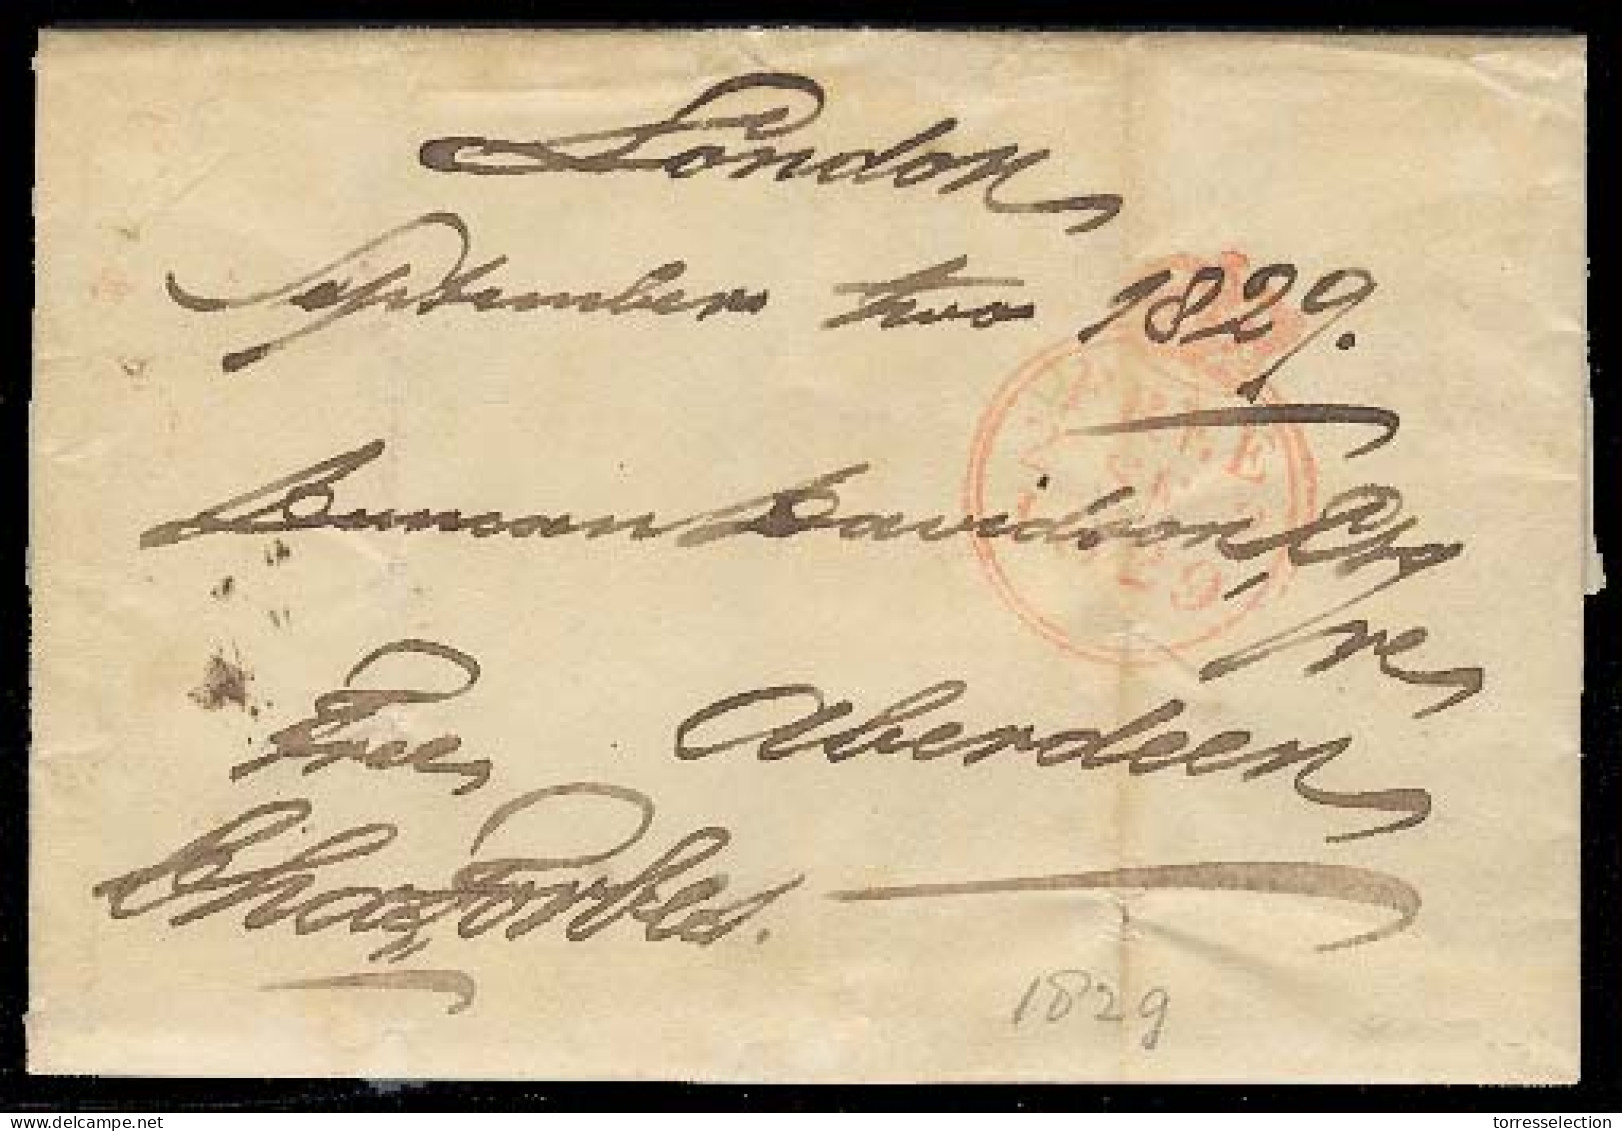 London,
September two 1829.
Duncan Davidson, Esq
re,
Free, Aberdeen,
Chas Forbes.
FREE
2 SE 2
1829
1829
torresselection